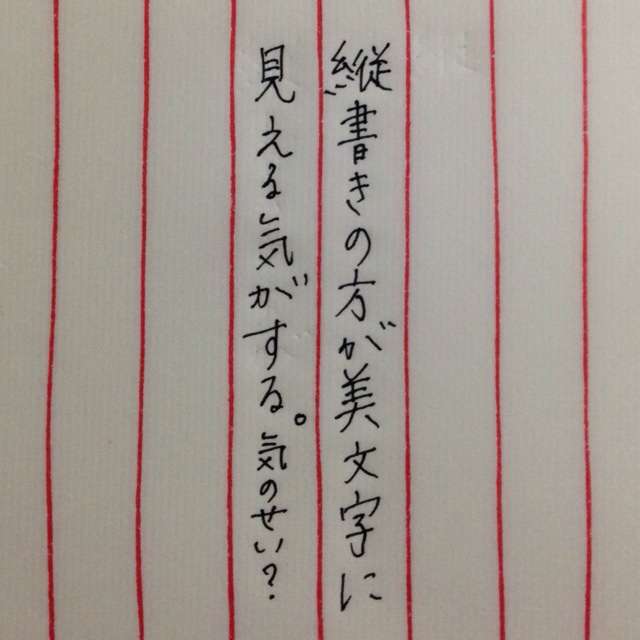 縦書きの方が美文字に
見える気がする。気のせい?